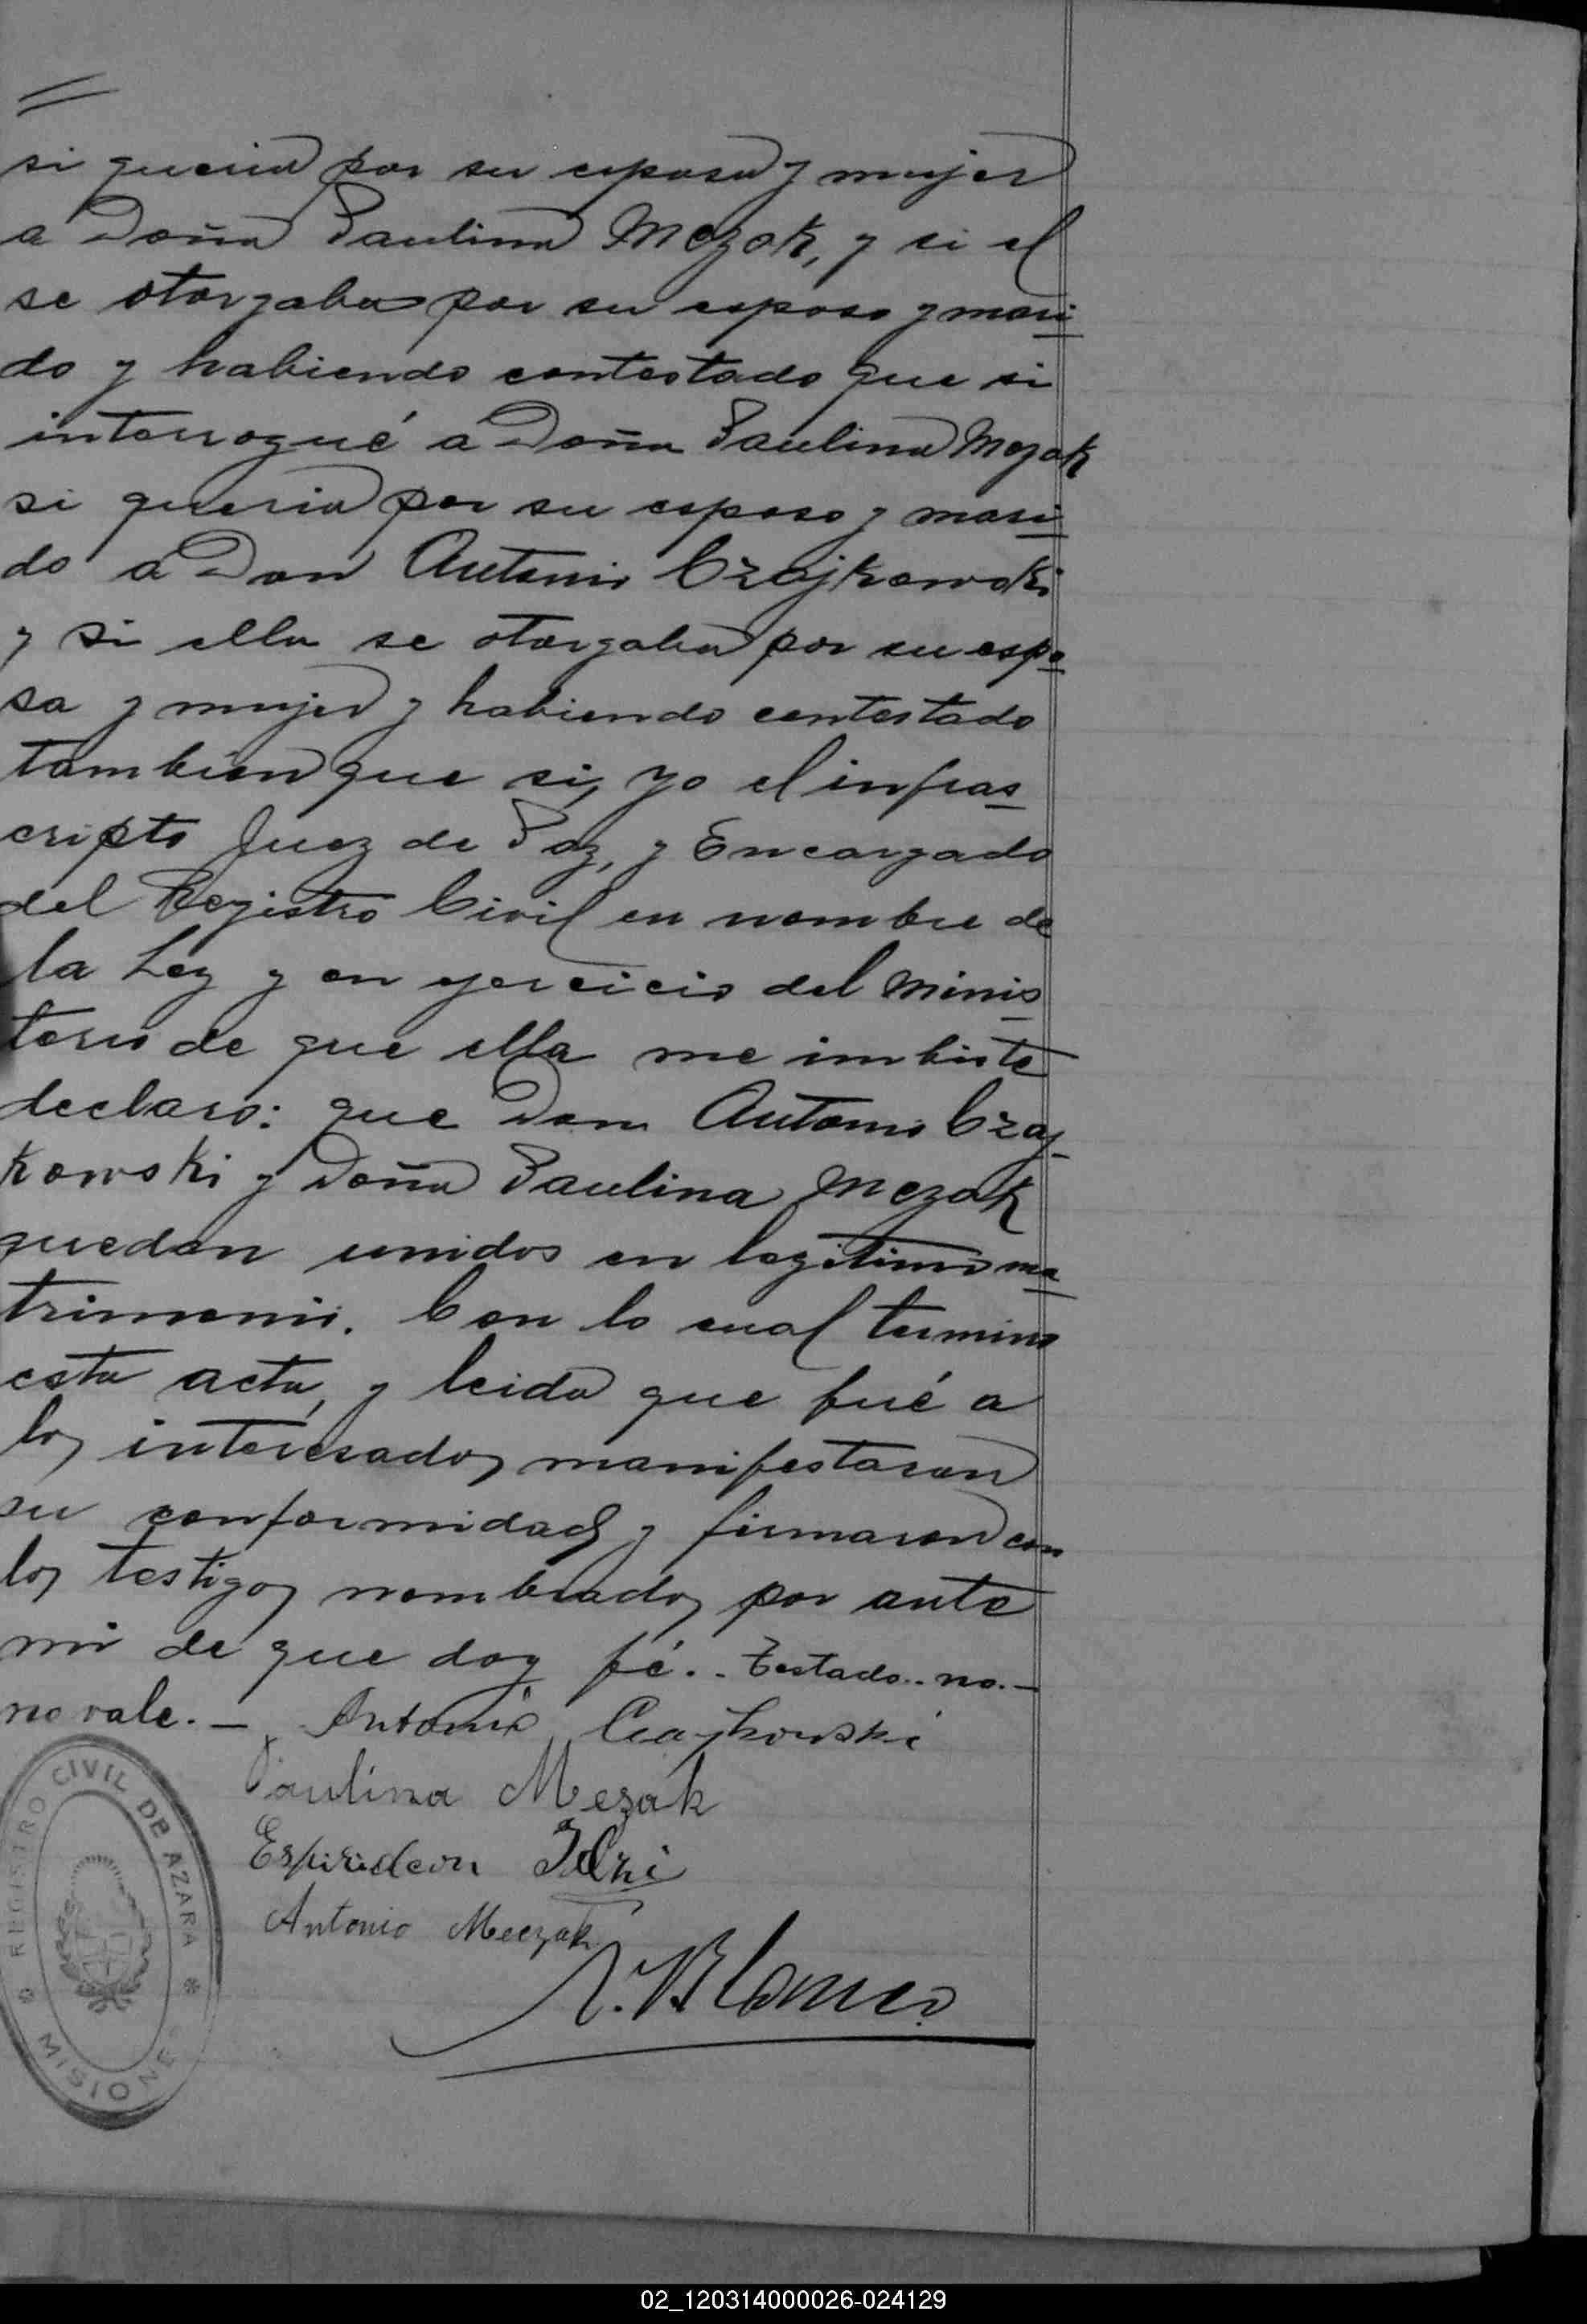 si queria por su esposa y mujer
a Doña Paulina Mezak, y si el
se otorgaba por su esposo y mari
do y habiendo contestado que si
interrogué á Doña Paulina Mezak
si queria por su esposo y mari
do á Don Antonio Czajkowski
y si ella se otorgaba por su espo
sa y mujer y habiendo contestado
tambien que si, yo el infras
cripto Juez de Paz, y Encargado
del Registro Civil en nombre de
la Ley y en ejercicio del minis
terio de que ella me imbiste
declaro: que Don Antonio Czaj
kowski y Doña Paulina Mezak
quedan unidos en legitimo ma
trimonio. Con lo cual termino
esta acta, y leida que fué a
los interesados manifestaron
su conformidad y firmaron con
los testigos nombrados por ante
mi de que doy fé. - Testado.. no. -
no vale. - Antonio Czajkowski
Paulina Mezak
Espirideon
Antonio Meczak
Blanco
REGISTRO CIVIL DE AZARA
* MISIONES *
02_120314000026-024129